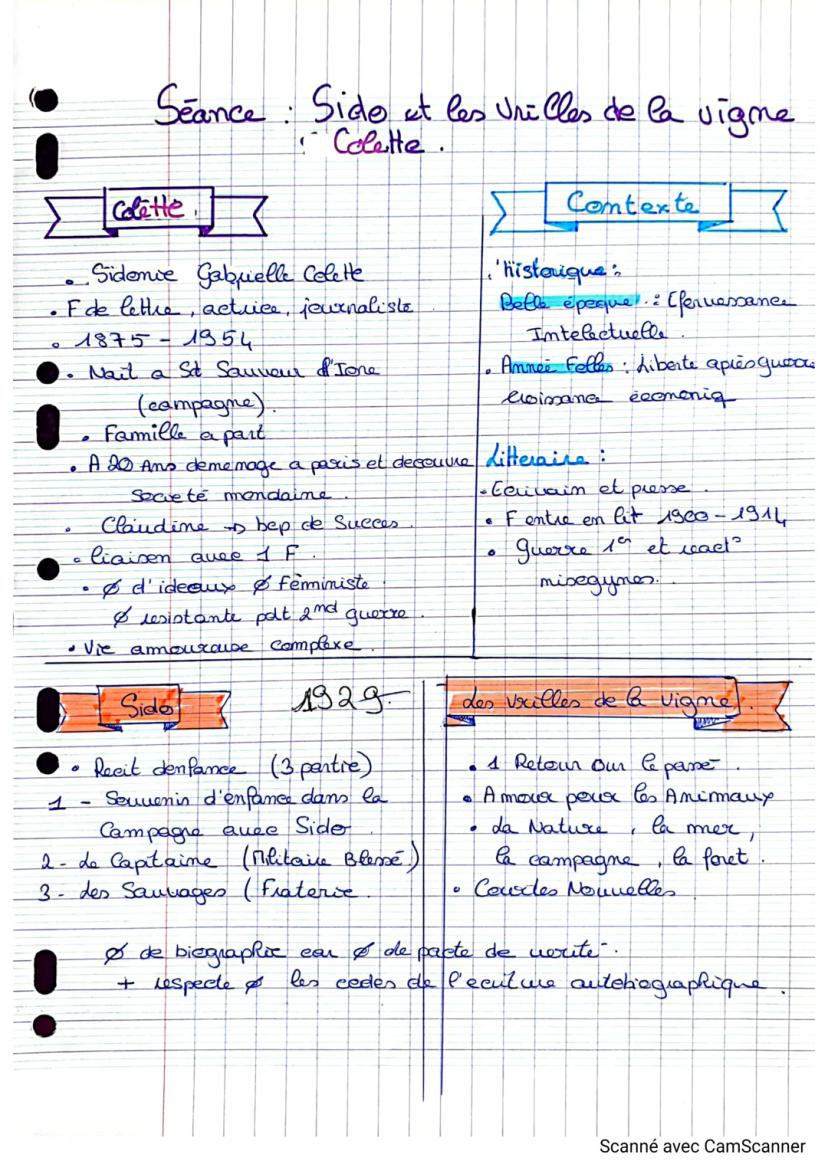 Séance : Sido et les vrilles de la vigne
: Colette.
Colette.
• Sidonie Gabrielle Colette
• F de lettre, actrice, journaliste
• 1875 - 1954
• Nait a St Sauveur d'Ione
(campagne).
• Famille a part
• A 20 Ans demenage a paris et decouvre
Societé mondaine.
• Claudine → bcp de Succes.
• liaison avec 1 F.
• Ø d'ideaux Ø Féministe
Ø resistante pdt 2nd guerre.
• Vie amoureuse complexe.
Contexte
historique :
Belle époque : Effervessance
Intelectuelle.
• Année Folles : Liberte après guerre
Croissance économiq
Litteraire :
• Ecrivain et presse.
• F entre en lit 1900 - 1914
• guerre 1er et react°
misogynes.
Sido 1929.
• Recit d'enfance (3 partie)
1 - Souvenir d'enfance dans la
Campagne avec Sido.
2 - Le Captaine (Militaire Blessé)
3 - des Sauvages (Fraterie.
des vrilles de la vigne.
• 1 Retour sur le passé.
• Amour pour les Animaux
• La Nature, la mer,
la campagne, la foret.
• Courtes Nouvelles
Ø de biographie car Ø de pacte de verité.
+ respecte Ø les codes de l'ecriture autobiographique.
Scanné avec CamScanner